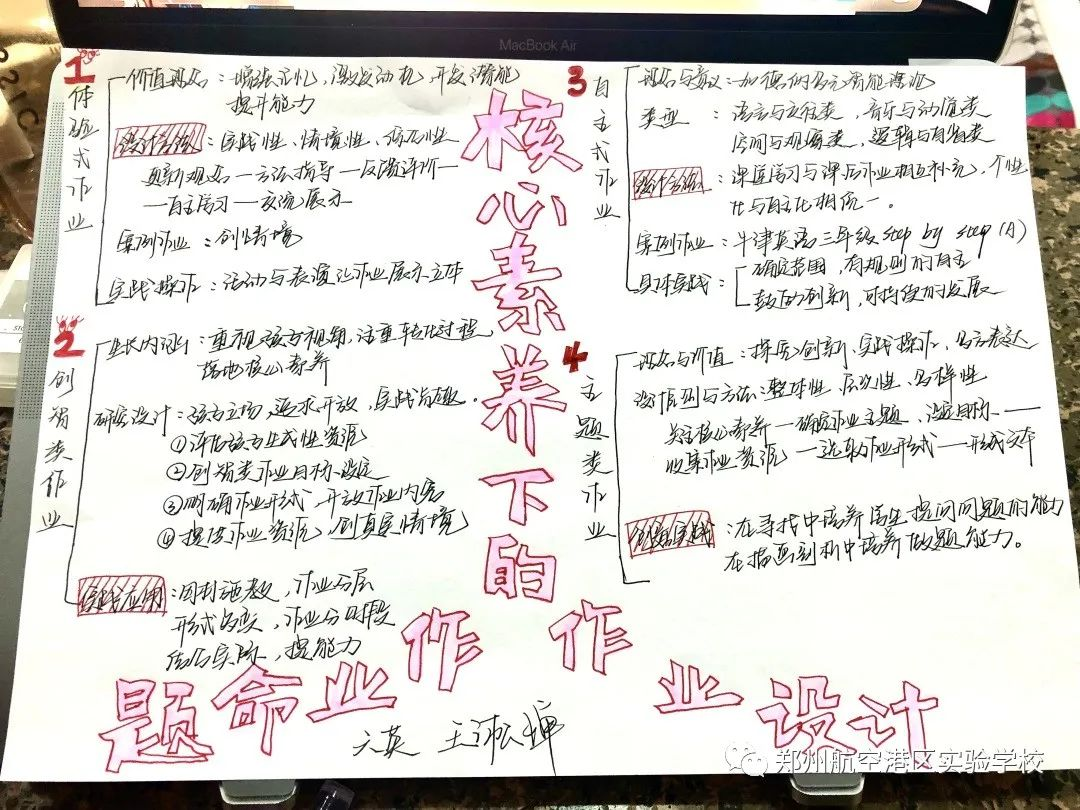 MacBook Air
核心素养下的
作业命题
作业设计
1
体验式作业
价值观念：增强记忆，激发动机，开发潜能
提升能力
实践性、情境性、
更新观念—方法指导—反馈评价—
—自主学习—交流展示
案例作业：创情境
实践操作：活动与表演让作业展示立体
2
创智类作业
重视孩子视角，注重转化过程
落地核心素养
研究设计：孩子立场，追求开放，实践智趣。
①评估孩子生成性资源
②创智类作业目标设定
③明确作业形式，开放作业内容
④提供作业资源，创真实情境
实践应用：因材施教，作业分层
形式多变，作业分时段
结合实际，提能力
3
自主式作业
观念与意义：加德纳多元智能理论
类型：语言与交往类，音乐与动觉类
空间与观察类，逻辑与自省类
课堂学习与课后作业相互补充，个性
化与自主化相统一。
案例作业：牛津英语三年级step by step (A)
具体实践：确定范围，有规则的自主
鼓励创新，可持续的发展
4
主题类作业
观念与价值：探究创新、实践操作、多元表达
设计原则与方法：整体性、层次性、多样性
关注核心素养—确定作业主题、设定目标—
收集作业资源—选取作业形式—形成文本
创新实践：在寻找中培养学生提问问题的能力
在指画刻积中培养做题能力。
六英
郑州航空港区实验学校